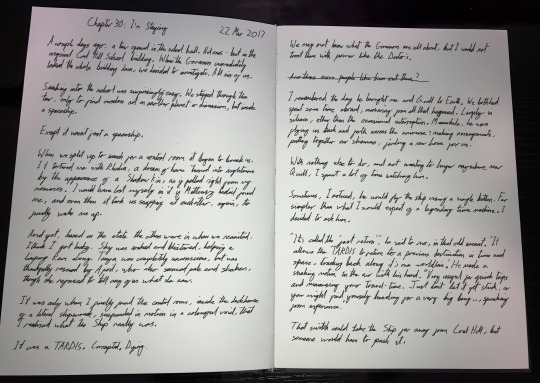 Chapter 30: I'm Staying
22 Mar 2017
A couple days ago, a tear opened in the school hall. Not ours - but in the
original Coal Hill School building. When the Governors immediately
locked the whole building down, we decided to investigate. All six of us.
Sneaking into the school was surprisingly easy. We stepped through the
tear, only to find ourselves not on another planet or dimension, but inside
a spaceship.
Except it wasn't just a spaceship.
When we split up to search for a control room it began to break us.
I it to me with Rhodia, a dream of home turned into nightmare
by the appearance of a Shadow Kin, as if pulled right from my
memories. I would have lost myself in it if Matteusz hadn't found
me, and even then it took us snapping at each other, again, to
finally wake me up.
And yet, based on the state the others were in when we reunited,
I think I got lucky. Shy was soaked and blistered, helping a
limping Ram along. Tanya was completely unconscious, but was
thankfully rescued by April, who also seemed pale and shaken,
though she refused to tell any of us what she saw.
It was only when I finally found the control room, inside the
of a literal shipwreck, suspended in motion in a void, that
I realised what the Ship really was.
It was a TARDIS. Corrupted. Dying.
We may not know what the Governors are all about, but I would not
trust them with power like the Doctor's.
them?
I remembered the day he brought me and Quill to Earth. We both had
spent some time aboard, mourning from all that happened. Largely in
silence, other than the occasional interruption. Meanwhile, he was
flying us back and forth across the universe: making arrangements,
putting together our show, finding a new home for us.
With nothing else to do, and not wanting to linger anywhere near
Quill, I spent a lot of time watching him.
Sometimes, I noticed, he would fly the ship using a single button. Far
simpler than what I would expect of a legendary time machine, I
decided to ask him.
"It's called the 'fast return'," he said to me, in that odd accent. "It
allows the TARDIS to return to a previous destination in time and
space, tracking back along its own worldline." He made a
motion in the air with his hand. "Very useful for quick trips
and minimising your travel-time. Just don't let it get stuck, or
you might find yourself heading for a very big bang... speaking
from experience."
That switch could take the Ship far away from Coal Hill, but
someone would have to push it.